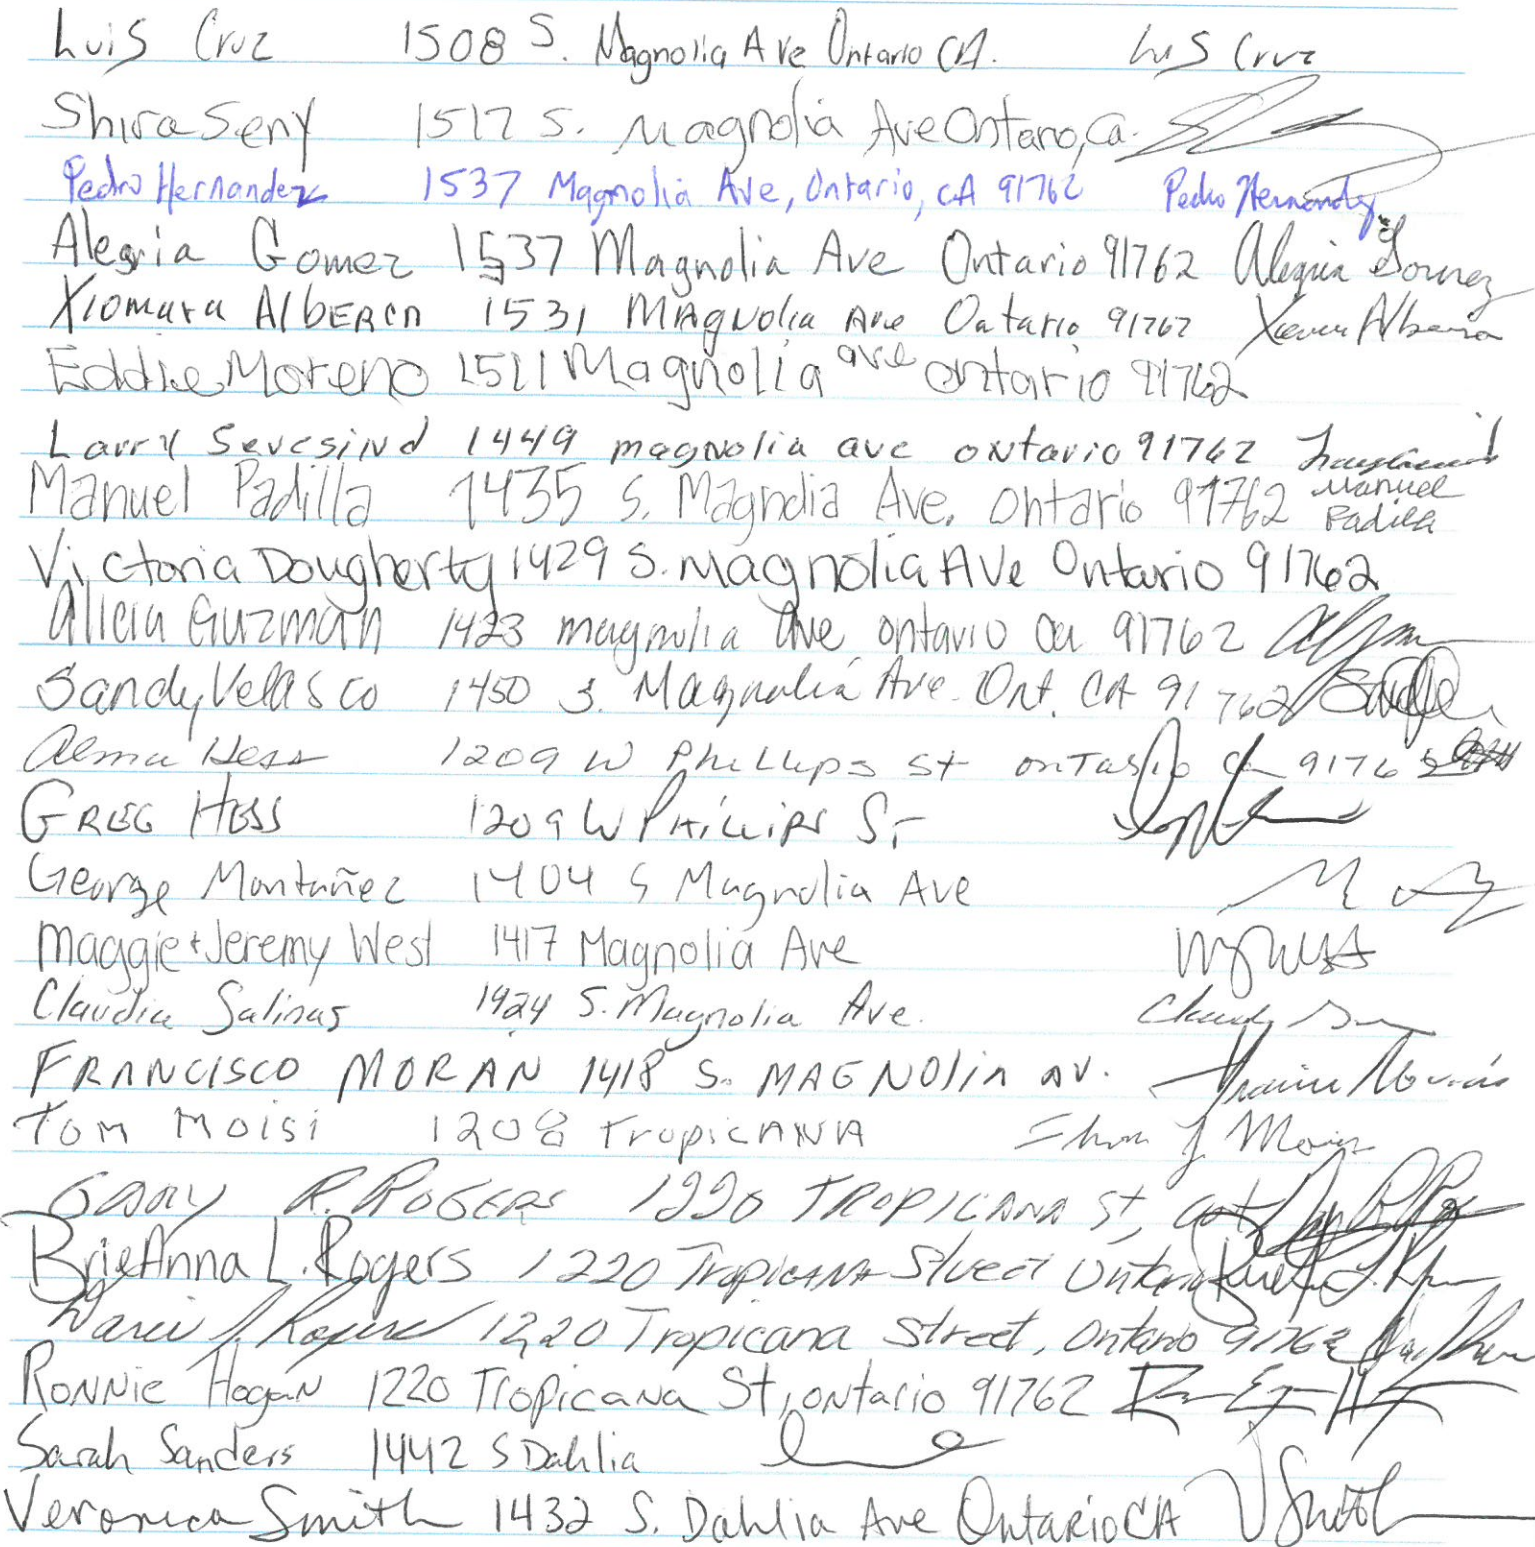 Luis Cruz 1508 S. Magnolia Ave Ontario CA. Luis Cruz
Shira Seny 1517 S. Magnolia Ave Ontario, Ca.
Pedro Hernandez 1537 Magnolia Ave, Ontario, CA 91762 Pedro Hernandez
Alegria Gomez 1537 Magnolia Ave Ontario 91762 Alegria Gomez
Xiomara Alberca 1531 Magnolia Ave Ontario 91762
Eddie Moreno 1511 Magnolia ave ontario 91762
Larry 1449 magnolia ave ontario 91762
Manuel Padilla 1435 S. Magnolia Ave. Ontario 91762 Manuel Padilla
Victoria Dougherty 1429 S. Magnolia Ave Ontario 91762
Alicia Guzman 1423 magnolia Ave ontario Ca 91762
Sandy Velasco 1450 S. Magnolia Ave. Ont. CA 91762
Alma Hess 1209 W Phillips St ontario Ca
Greg Hess 1209 W Phillips St
George Montañez 1404 S Magnolia Ave
Maggie + Jeremy West 1417 Magnolia Ave
Claudia Salinas 1424 S. Magnolia Ave.
FRANCISCO MORAN 1418 S. MAGNOLIA AV.
Tom Moisi 1208 Tropicana
GARY R. ROGERS 1220 TROPICANA St,
BrieAnna L. Rogers 1220 Tropicana Street Ontario
1220 Tropicana Street, Ontario 91762
Ronnie Hogan 1220 Tropicana St, Ontario 91762
Sarah Sanders 1442 S Dahlia
Veronica Smith 1432 S. Dahlia Ave Ontario CA V Smith